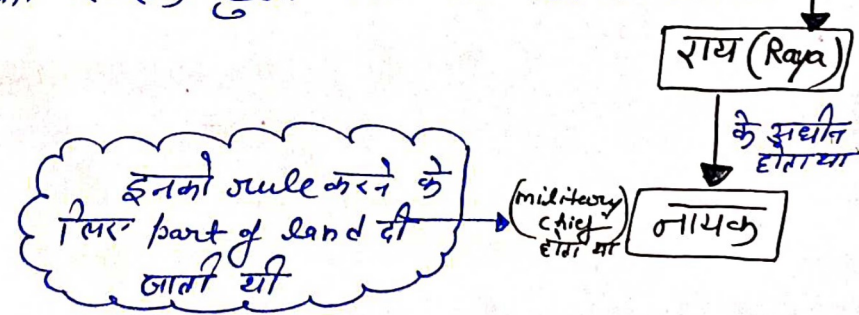 राय (Raya)
के अधीन
होता था
इनको rule करने के
लिए part of land दी
जाती थी
(military
chief
होता था)
नायक